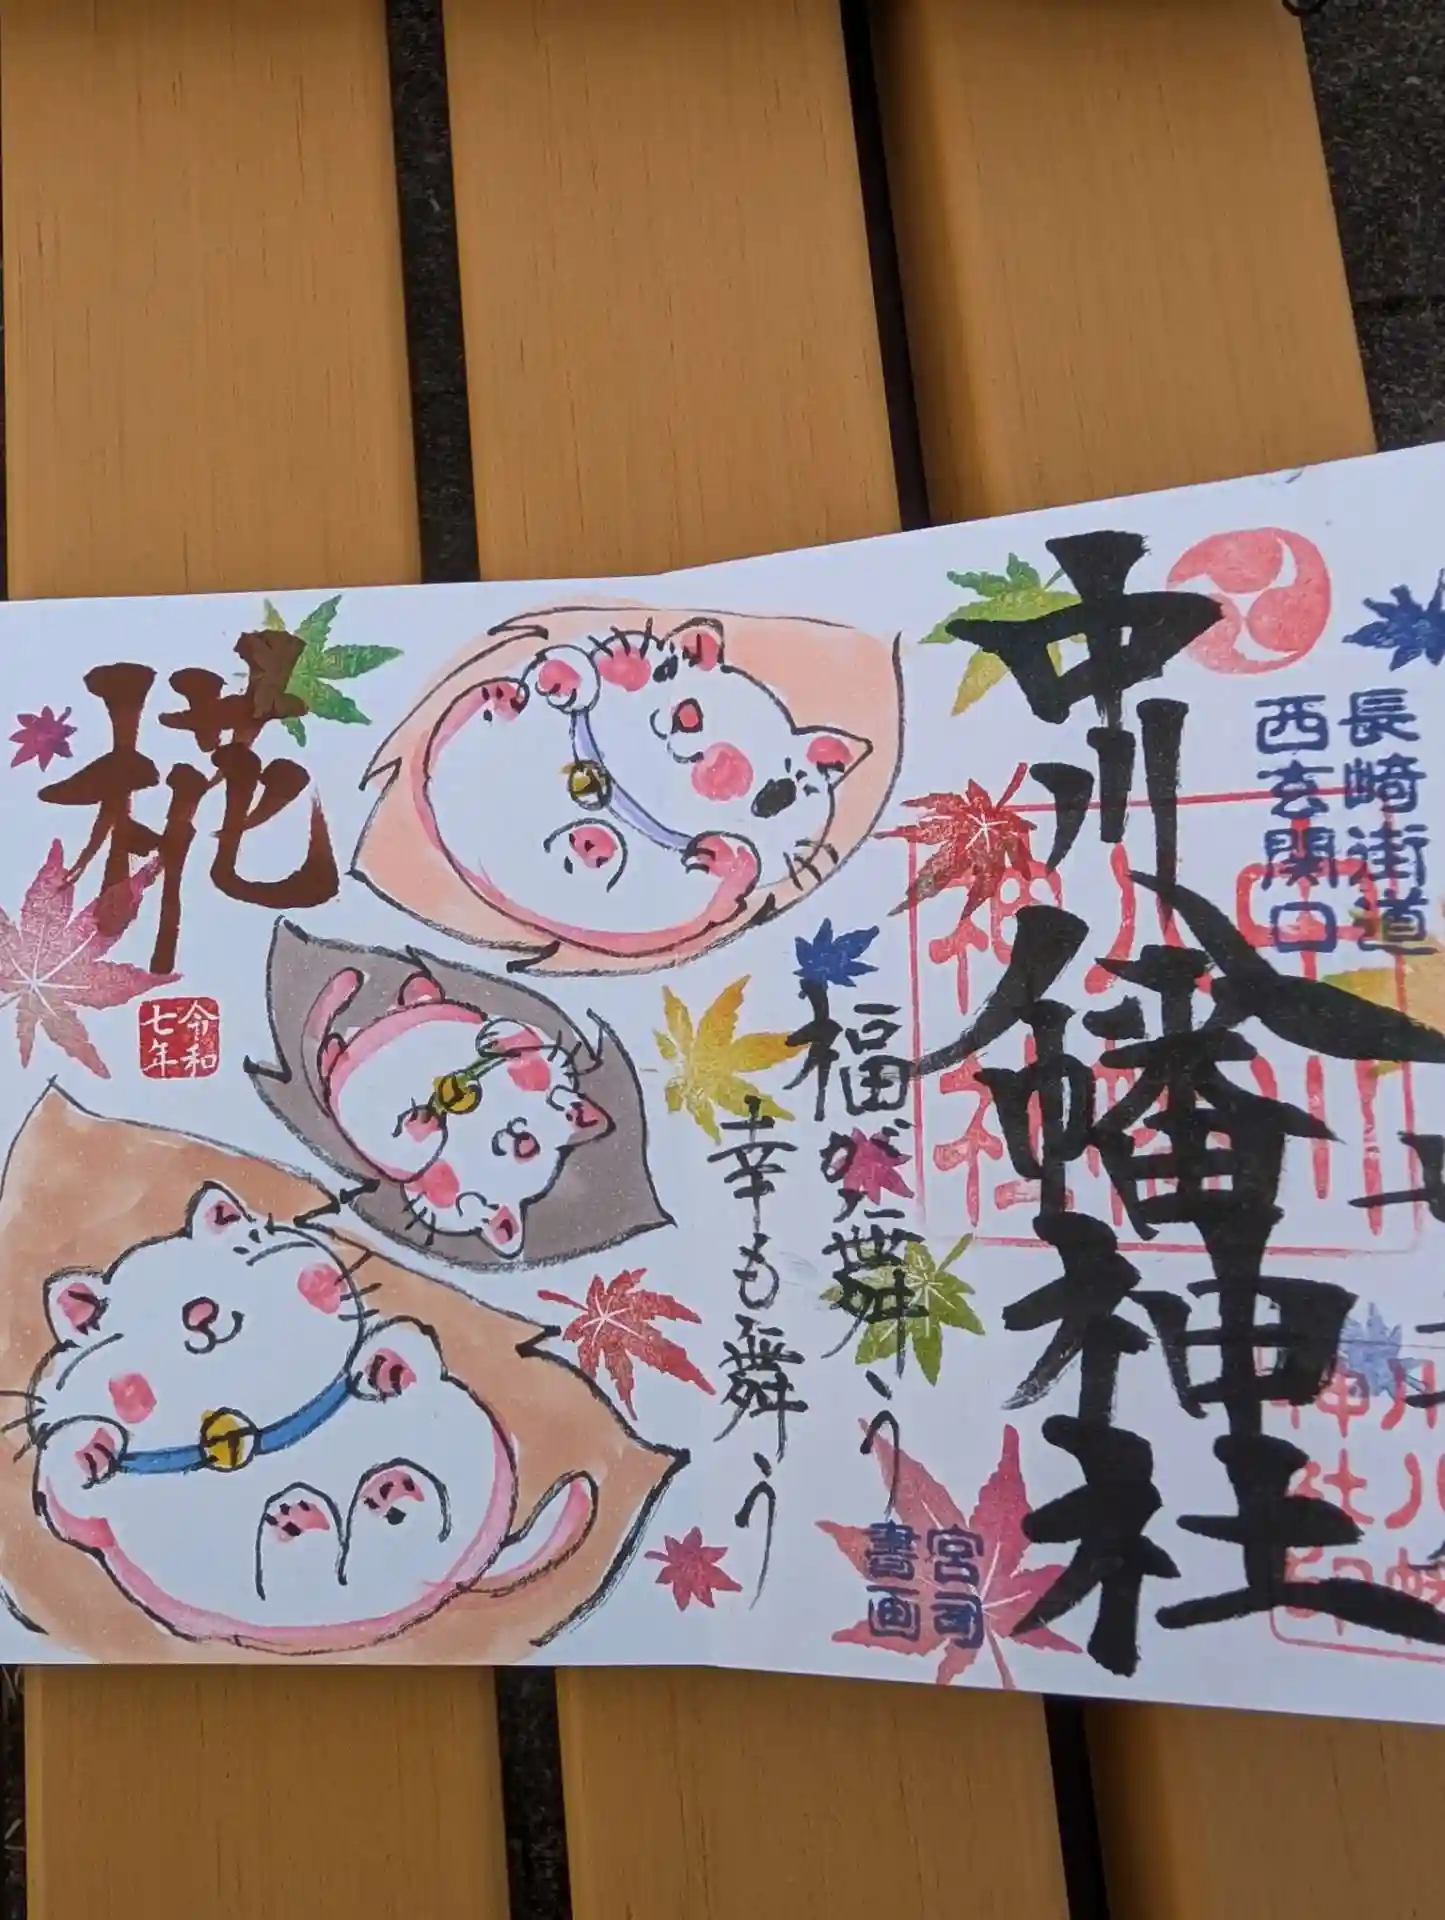 長崎街道
西玄関口
中川八幡神社
中川
八幡
神社
福が舞う
幸も舞う
宮司
書画
椛
令和
七年